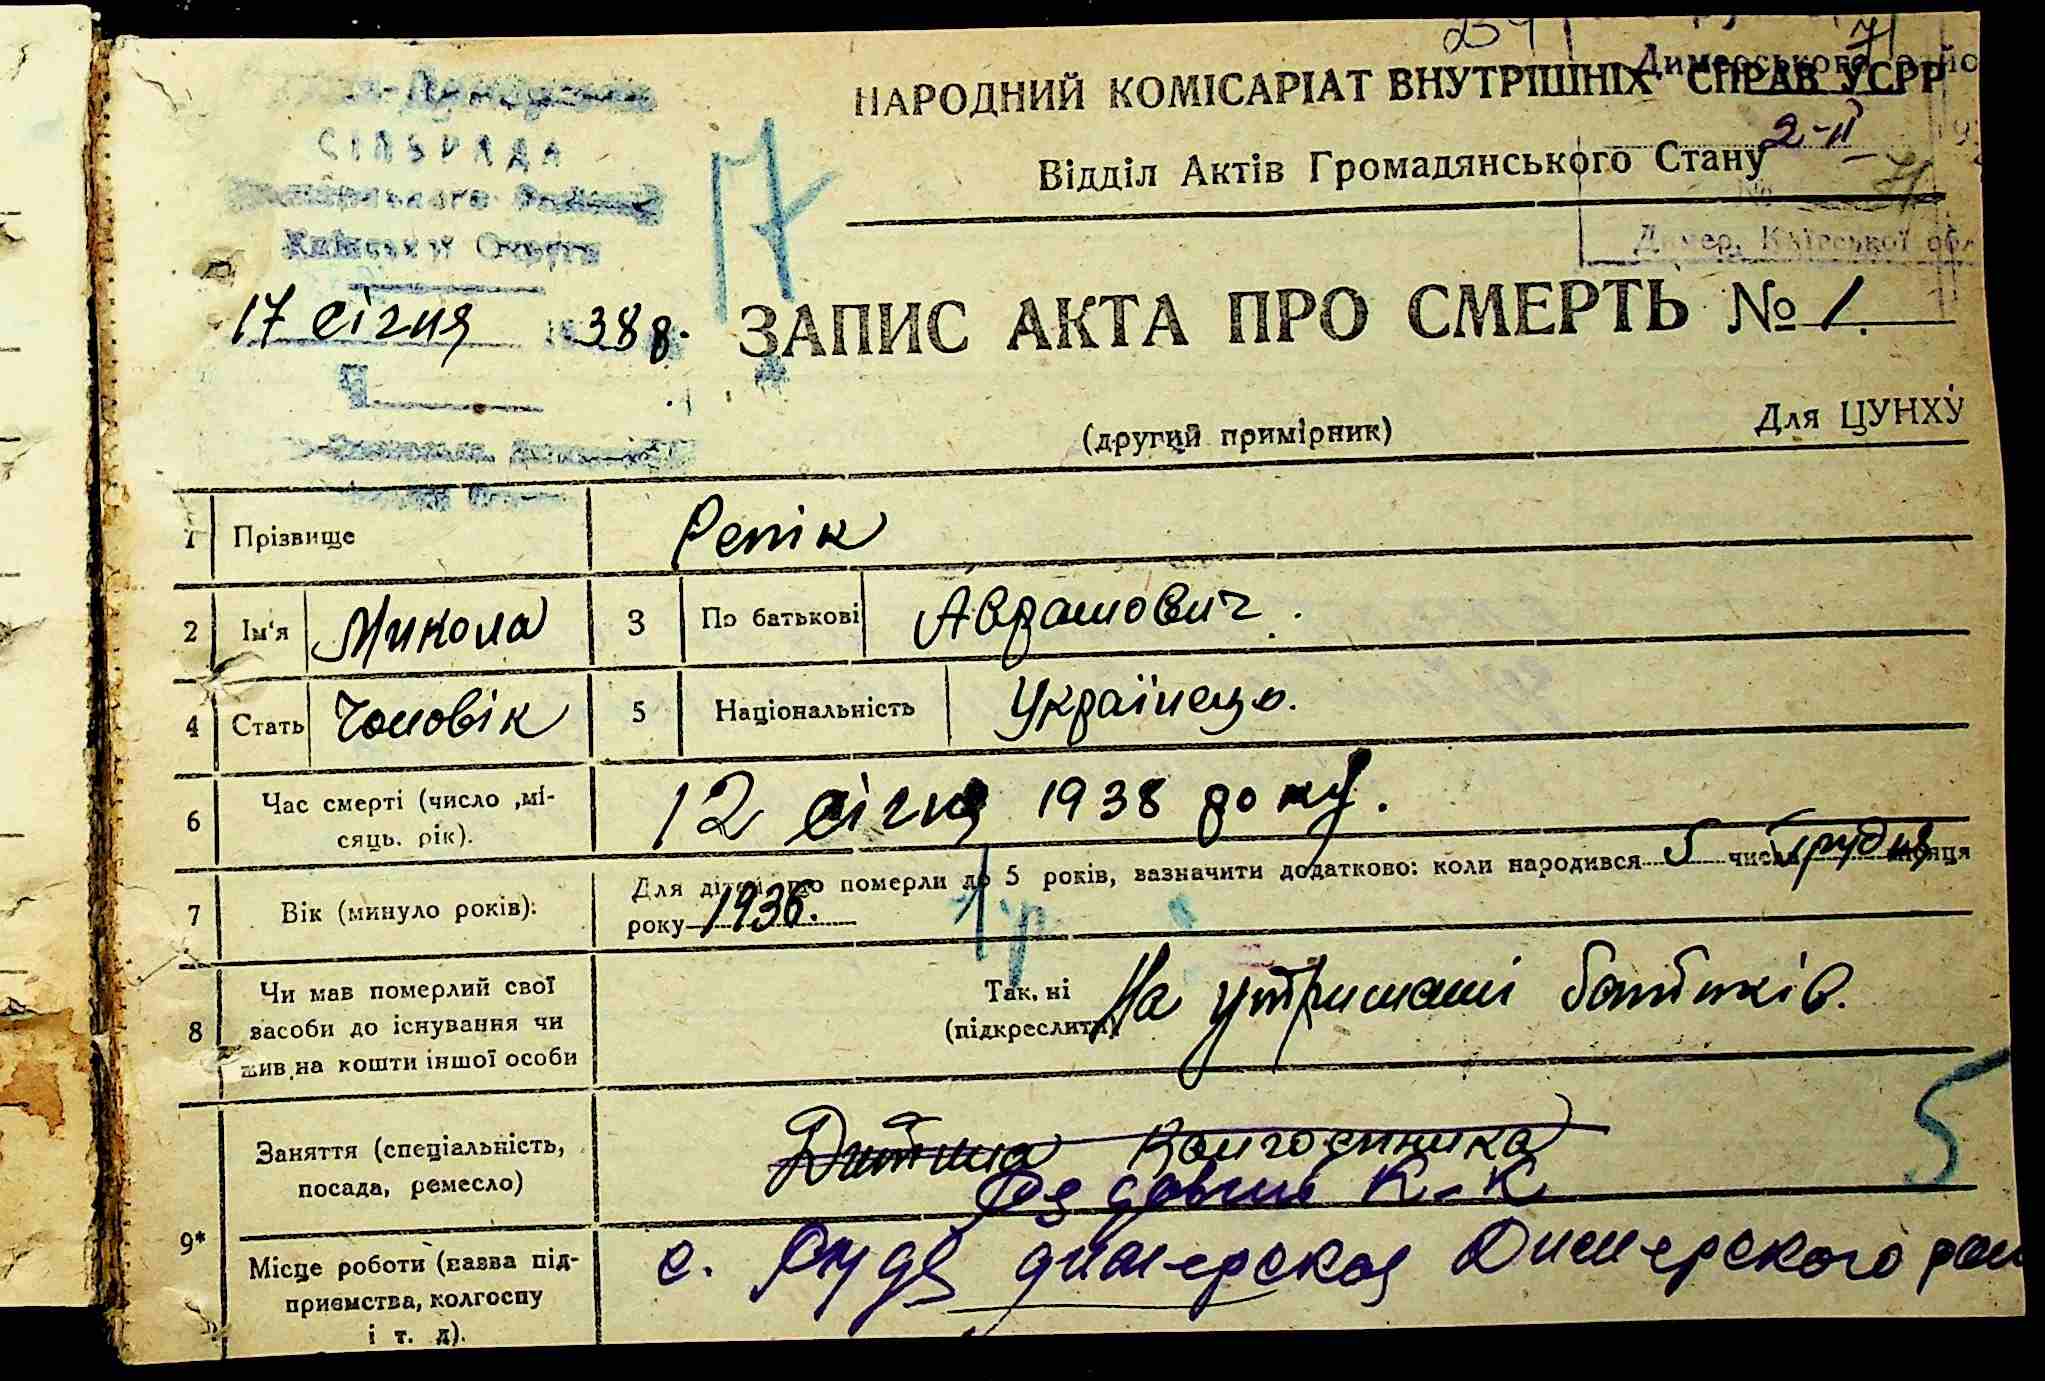 254
71
Димерського
НАРОДНИЙ КОМІСАРІАТ ВНУТРІШНІХ СПРАВ УСРР
СІЛЬРАДА
Відділ Актів Громадянського Стану
2-II
№ 71
Димер, Київської обл
17
17 січня 1938 р.
ЗАПИС АКТА ПРО СМЕРТЬ № 1.
(другий примірник)
Для ЦУНХУ
1 Прізвище Репік
2 Ім'я Микола 3 По батькові Аврамович.
4 Стать Чоловік 5 Національність Українець.
6 Час смерті (число ,мі-
сяць. рік).
12 січня 1938 року.
7 Вік (минуло років):
Для дітей, що померли до 5 років, вазначити додатково: коли народився 5 числа грудня місяця
року 1936.
1 р
8 Чи мав померлий свої
васоби до існування чи
жив на кошти іншої особи
Так, ні
(підкреслити)
На утриманні батьків.
5
9*
Заняття (спеціальність,
посада, ремесло)
Дитина колгоспника
К-К
Місце роботи (назва під-
приємства, колгоспу
і т. д).
с. Рудя димерская Димерского рай